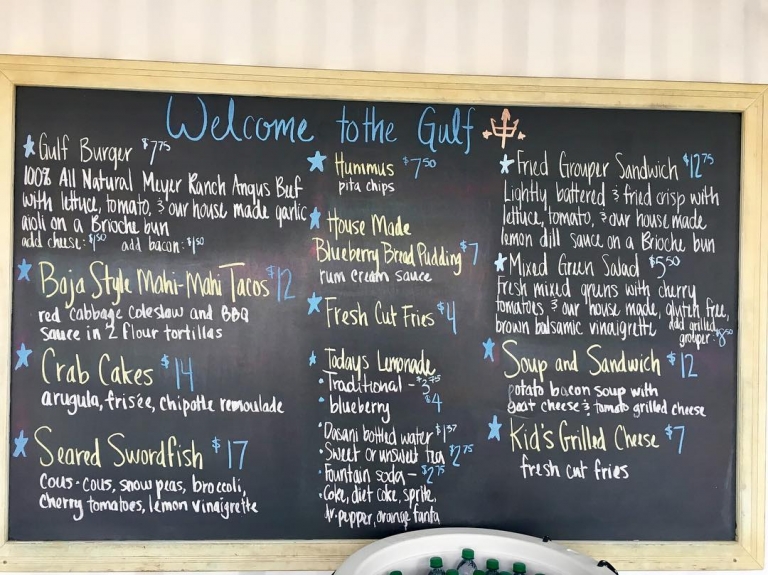 Welcome to the Gulf
Gulf Burger $7.75
100% All Natural Meyer Ranch Angus Beef
with lettuce, tomato, & our house made garlic
aioli on a Brioche bun
add cheese: $1.50 add bacon: $1.50
Baja Style Mahi-Mahi Tacos $12
red cabbage coleslaw and BBQ
sauce in 2 flour tortillas
Crab Cakes $14
arugula, frisée, chipotle remoulade
Seared Swordfish $17
cous-cous, snow peas, broccoli,
cherry tomatoes, lemon vinaigrette
Hummus $7.50
pita chips
House Made
Blueberry Bread Pudding $7
rum cream sauce
Fresh Cut Fries $4
Todays Lemonade
• Traditional - $3.75
• blueberry $4
• Dasani bottled water $1.57
• Sweet or unsweet tea $2.75
• Fountain soda - $2.75
• Coke, diet coke, sprite,
dr. pepper, orange fanta
Fried Grouper Sandwich $12.75
Lightly battered & fried crisp with
lettuce, tomato, & our house made
lemon dill sauce on a Brioche bun
Mixed Green Salad $5.50
Fresh mixed greens with cherry
tomatoes & our house made, gluten free,
brown balsamic vinaigrette add grilled
grouper: $8.50
Soup and Sandwich $12
potato bacon soup with
goat cheese & tomato grilled cheese
Kid's Grilled Cheese $7
fresh cut fries